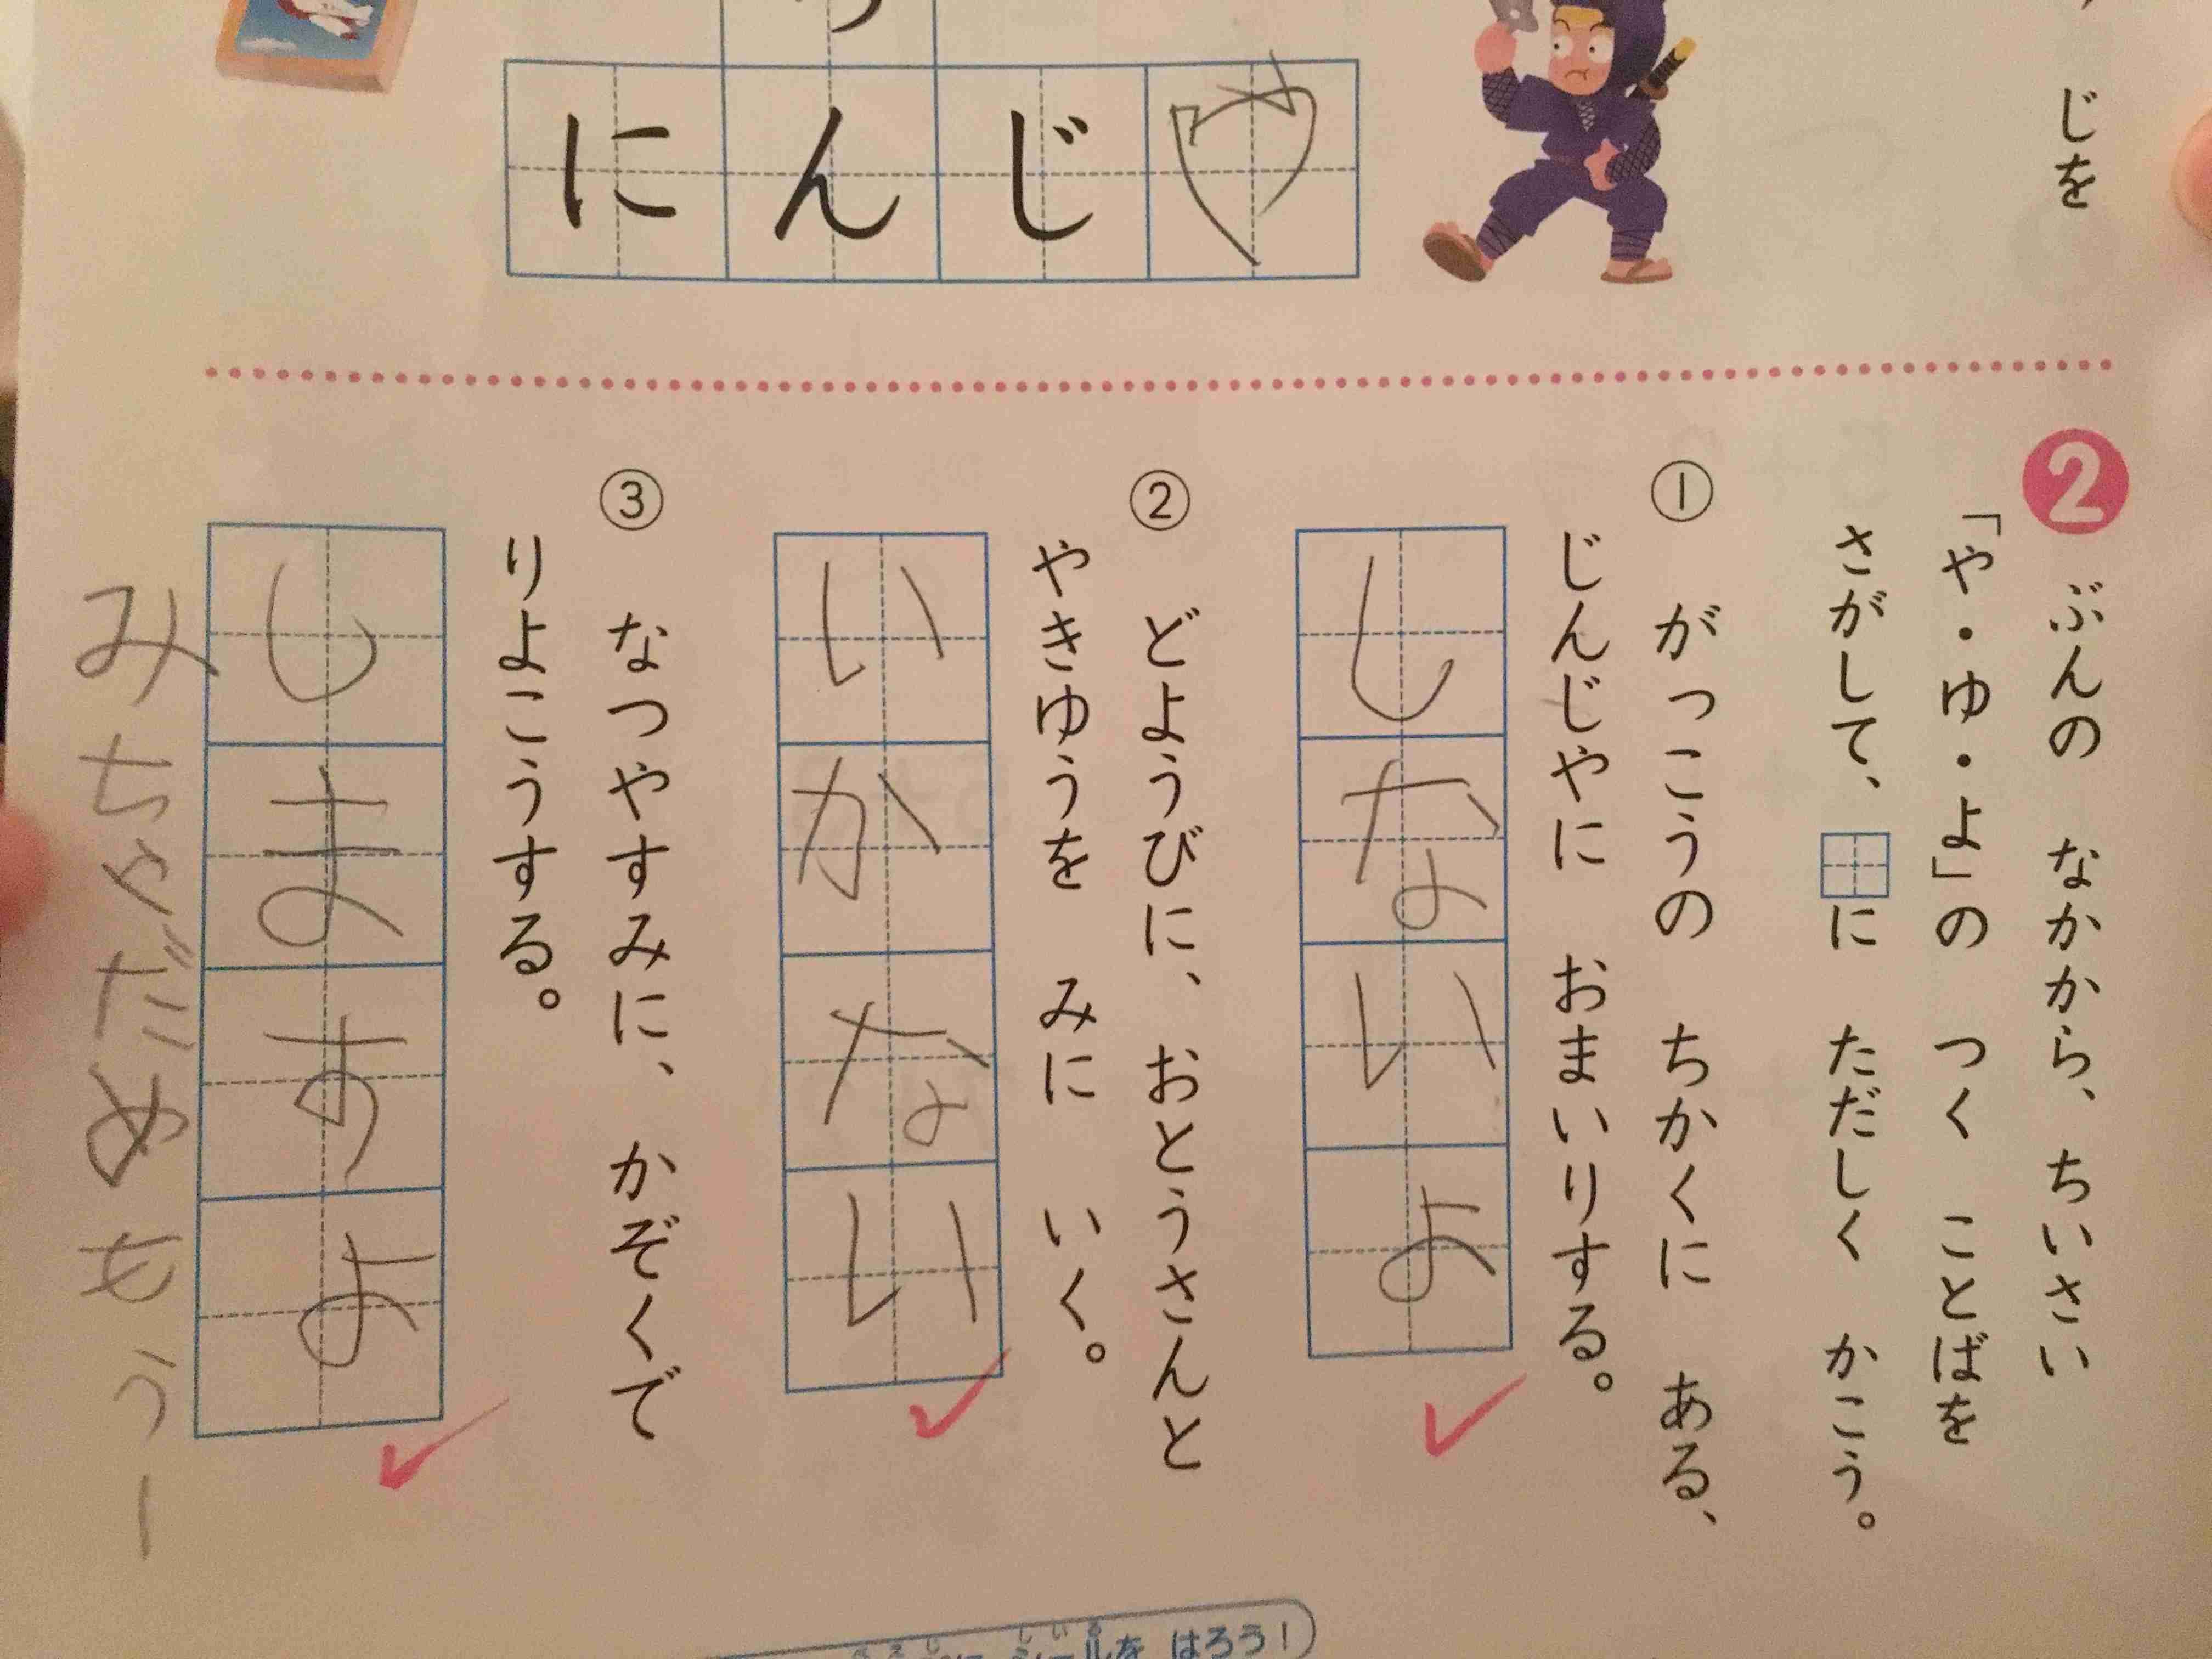 じを
っ
にんじや
2 ぶんの なかから、ちいさい
「や・ゆ・よ」の つく ことばを
さがして、 に ただしく かこう。
① がっこうの ちかくに ある、
じんじやに おまいりする。
しなよいよ
② どようびに、おとうさんと
やきゆうを みに いく。
いかなよい
③ なつやすみに、かぞくで
りよこうする。
しますよ
みちゃだめもうー
シールを はろう!